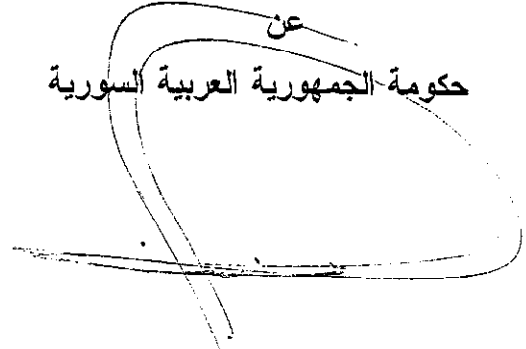 عن
حكومة الجمهورية العربية السورية